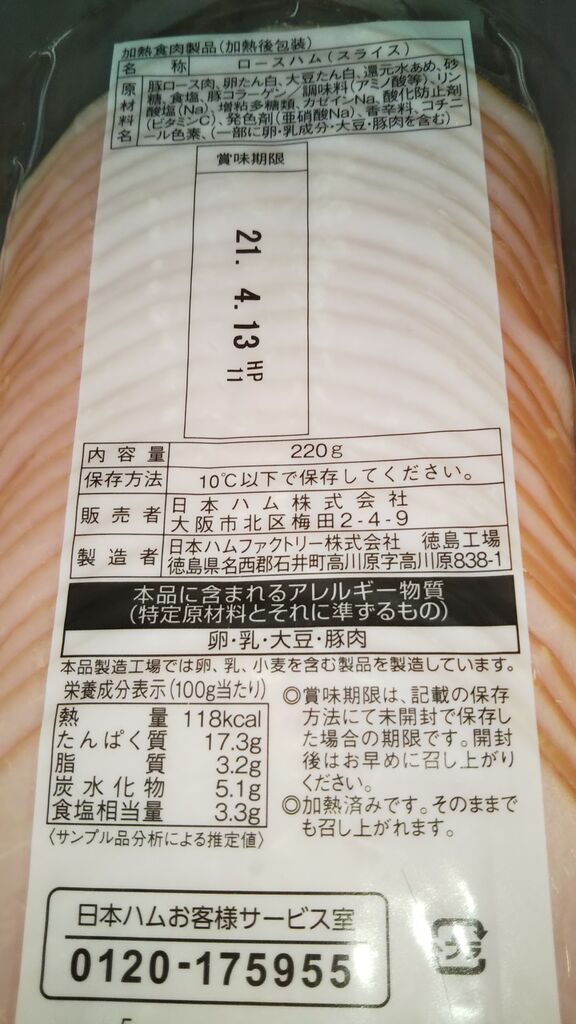 加熱食肉製品(加熱後包装)
名称 ロースハム(スライス)
原材料名 豚ロース肉、卵たん白、大豆たん白、還元水あめ、砂
糖、食塩、豚コラーゲン/調味料(アミノ酸等)、リン
酸塩(Na)、増粘多糖類、カゼインNa、酸化防止剤
(ビタミンC)、発色剤(亜硝酸Na)、香辛料、コチニ
ール色素、(一部に卵・乳成分・大豆・豚肉を含む)
賞味期限
21. 4. 13 HP
11
内容量 220g
保存方法 10℃以下で保存してください。
販売者 日本ハム株式会社
大阪市北区梅田2-4-9
製造者 日本ハムファクトリー株式会社 徳島工場
徳島県名西郡石井町高川原字高川原838-1
本品に含まれるアレルギー物質
(特定原材料とそれに準ずるもの)
卵・乳・大豆・豚肉
本品製造工場では卵、乳、小麦を含む製品を製造しています。
栄養成分表示(100g当たり)
熱量 118kcal
たんぱく質 17.3g
脂質 3.2g
炭水化物 5.1g
食塩相当量 3.3g
〈サンプル品分析による推定値〉
◎賞味期限は、記載の保存
方法にて未開封で保存し
た場合の期限です。開封
後はお早めに召し上がり
ください。
◎加熱済みです。そのままで
も召し上がれます。
日本ハムお客様サービス室
0120-175955
プラ